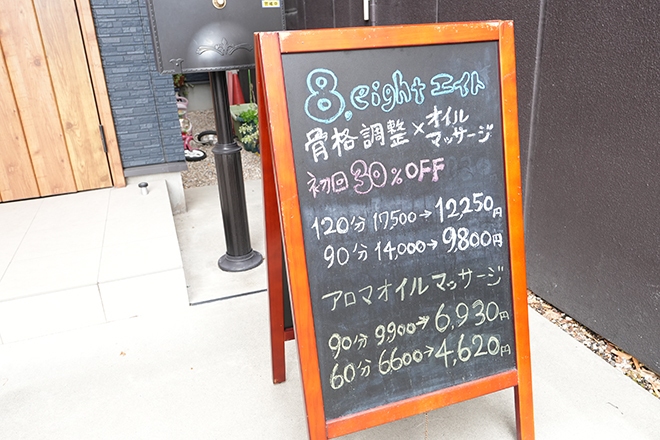 8.eight エイト
骨格調整×オイルマッサージ
初回30%OFF
120分 17,500→12,250円
90分 14,000→9,800円
アロマオイルマッサージ
90分 9,900→6,930円
60分 6600→4,620円